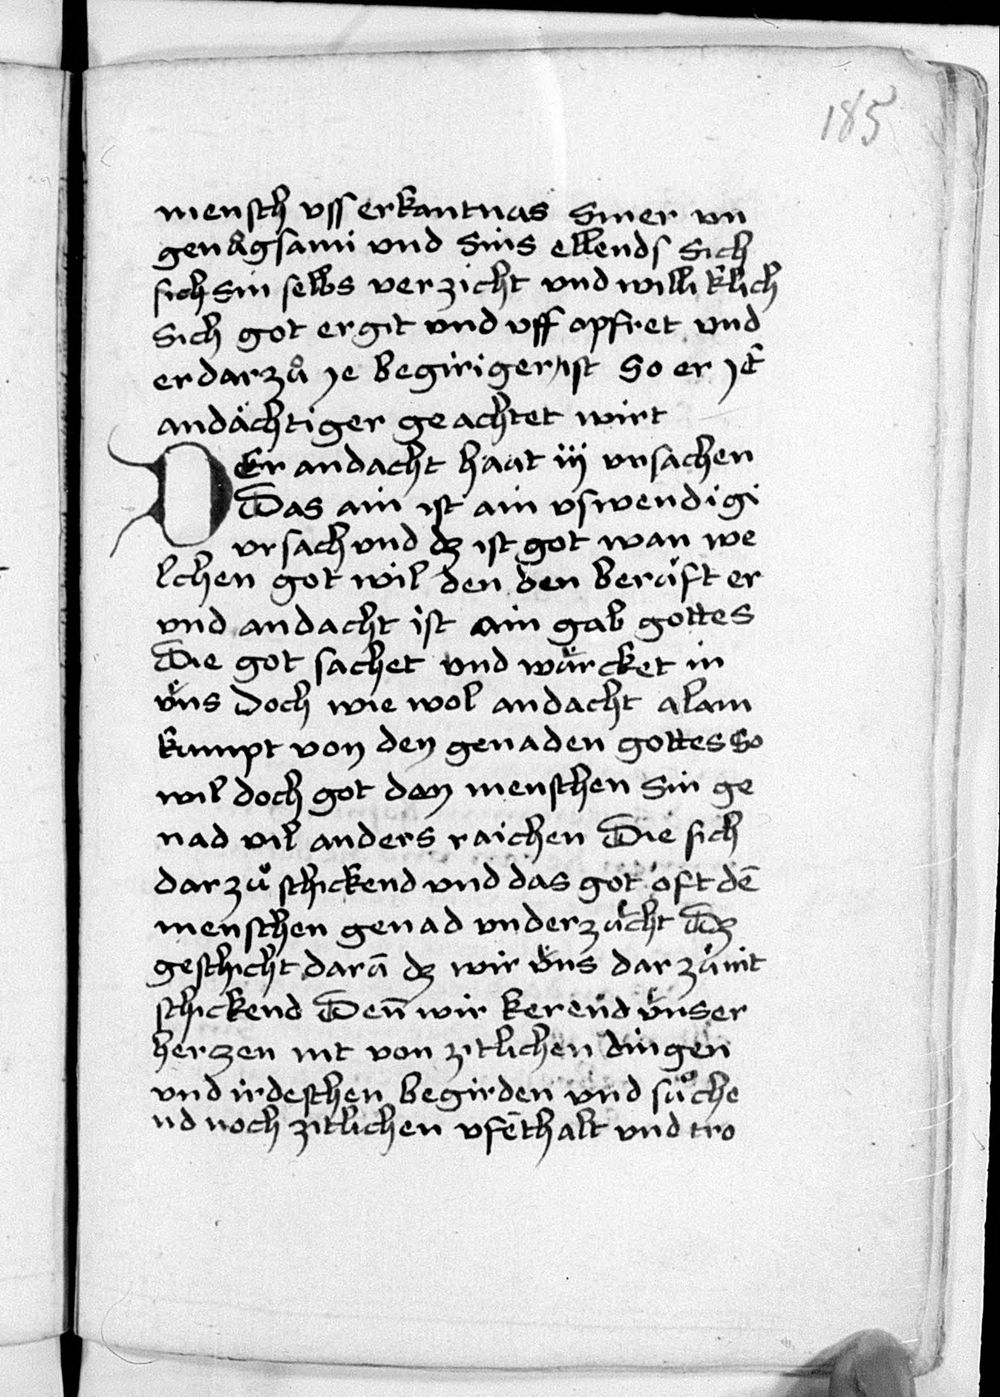 185
mensch vss erkantnus siner vn
genůgsami vnd sins ellends sich
sich sin selbs verzicht vnd willi klich
sich got ergit vnd vff opfret vnd
er darzů ye begiriger ist so er ye
andächtiger geachtet wirt
DEr andacht haat iij vrsachen
Das ain ist ain vswendigi
vrsach vnd dz ist got wan we
lchen got wil den den beräft er
vnd andacht ist ain gab gottes
Die got sachet vnd würcket in
vns Doch wie wol andacht alain
kumpt von den genaden gottes so
wil doch got den menschen sin ge
nad vil anders raichen Die sich
darzů schickend vnd das got oft dē
menschen genad vnderzücht Dz
geschicht darā dz wir vns darzů nit
schickend Deñ wir kerend vnser
herzen nit von zitlichen dingen
vnd irdeschen begirden vnd sůche
nd noch zitlichen vfēthalt vnd tro